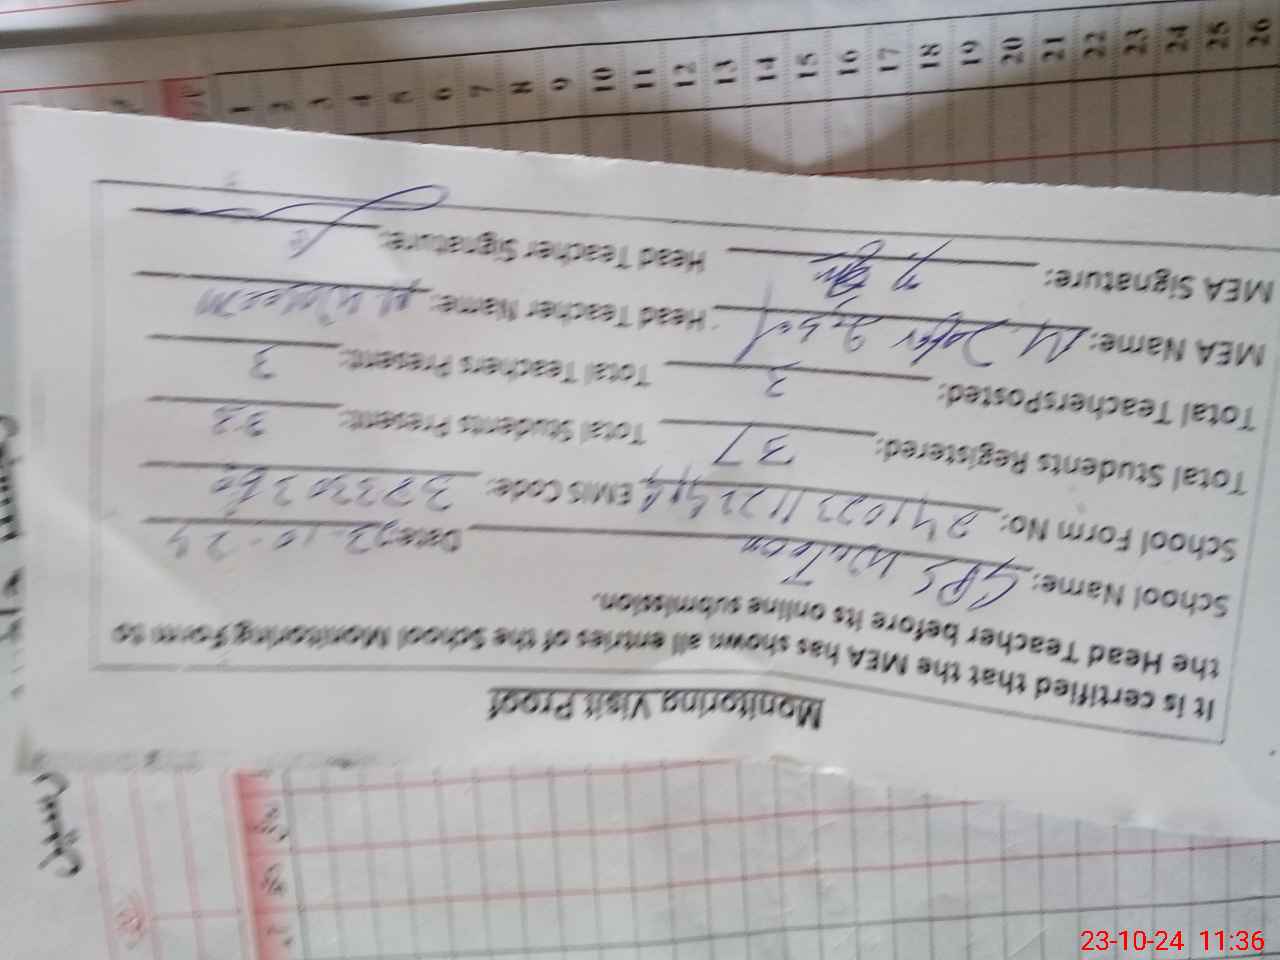 Monitoring Visit Proof
It is certified that the MEA has shown all entries of the School Monitoring Form to
the Head Teacher before its online submission.
School Name: GPS Wutoon Date: 23.10.24
School Form No: EMIS Code:
Total Students Registered: 37 Total Students Present:
Total TeachersPosted: 3 Total Teachers Present: 3
MEA Name: M. Zafar Iqbal Head Teacher Name: M. Waseem
MEA Signature: Head Teacher Signature:
1 2 3 4 5 6 7 8 9 10 11 12 13 14 15 16 17 18 19 20 21 22 23 24 25 26
23-10-24 11:36